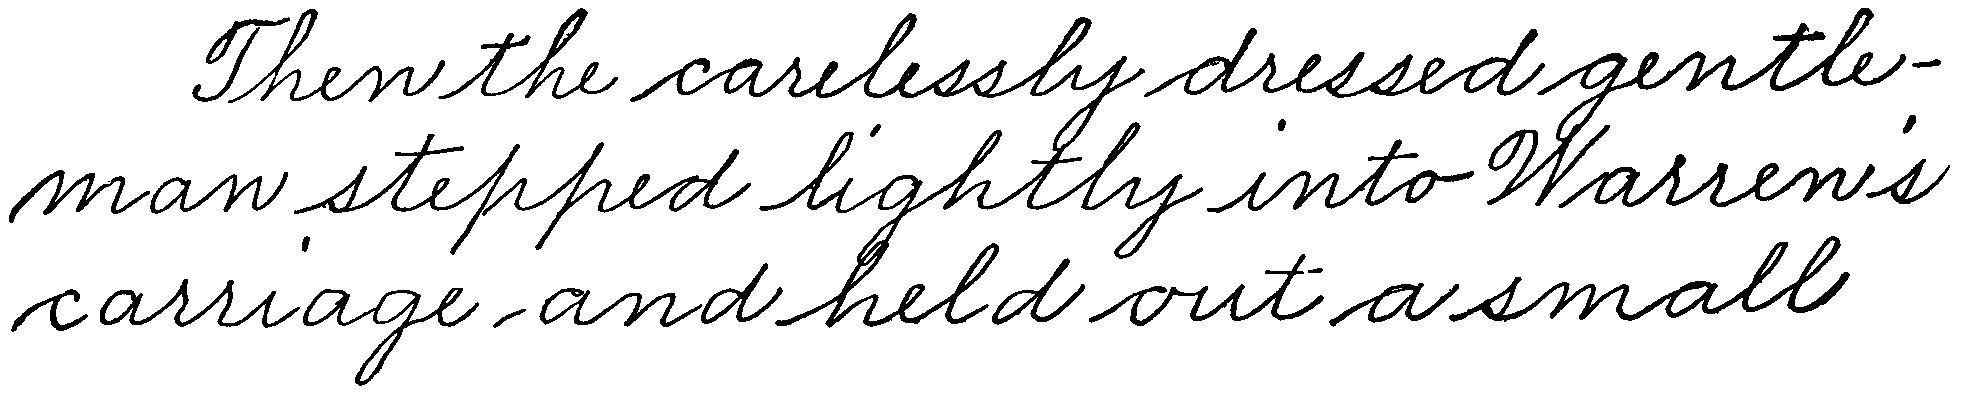 Then the carelessly dressed gentle-
man stepped lightly into Warren's
carriage and held out a small